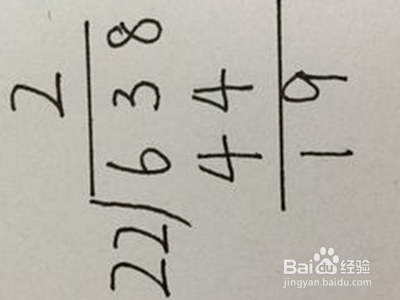 2
22)638
44
19
Baidu经验
jingyan.baidu.com